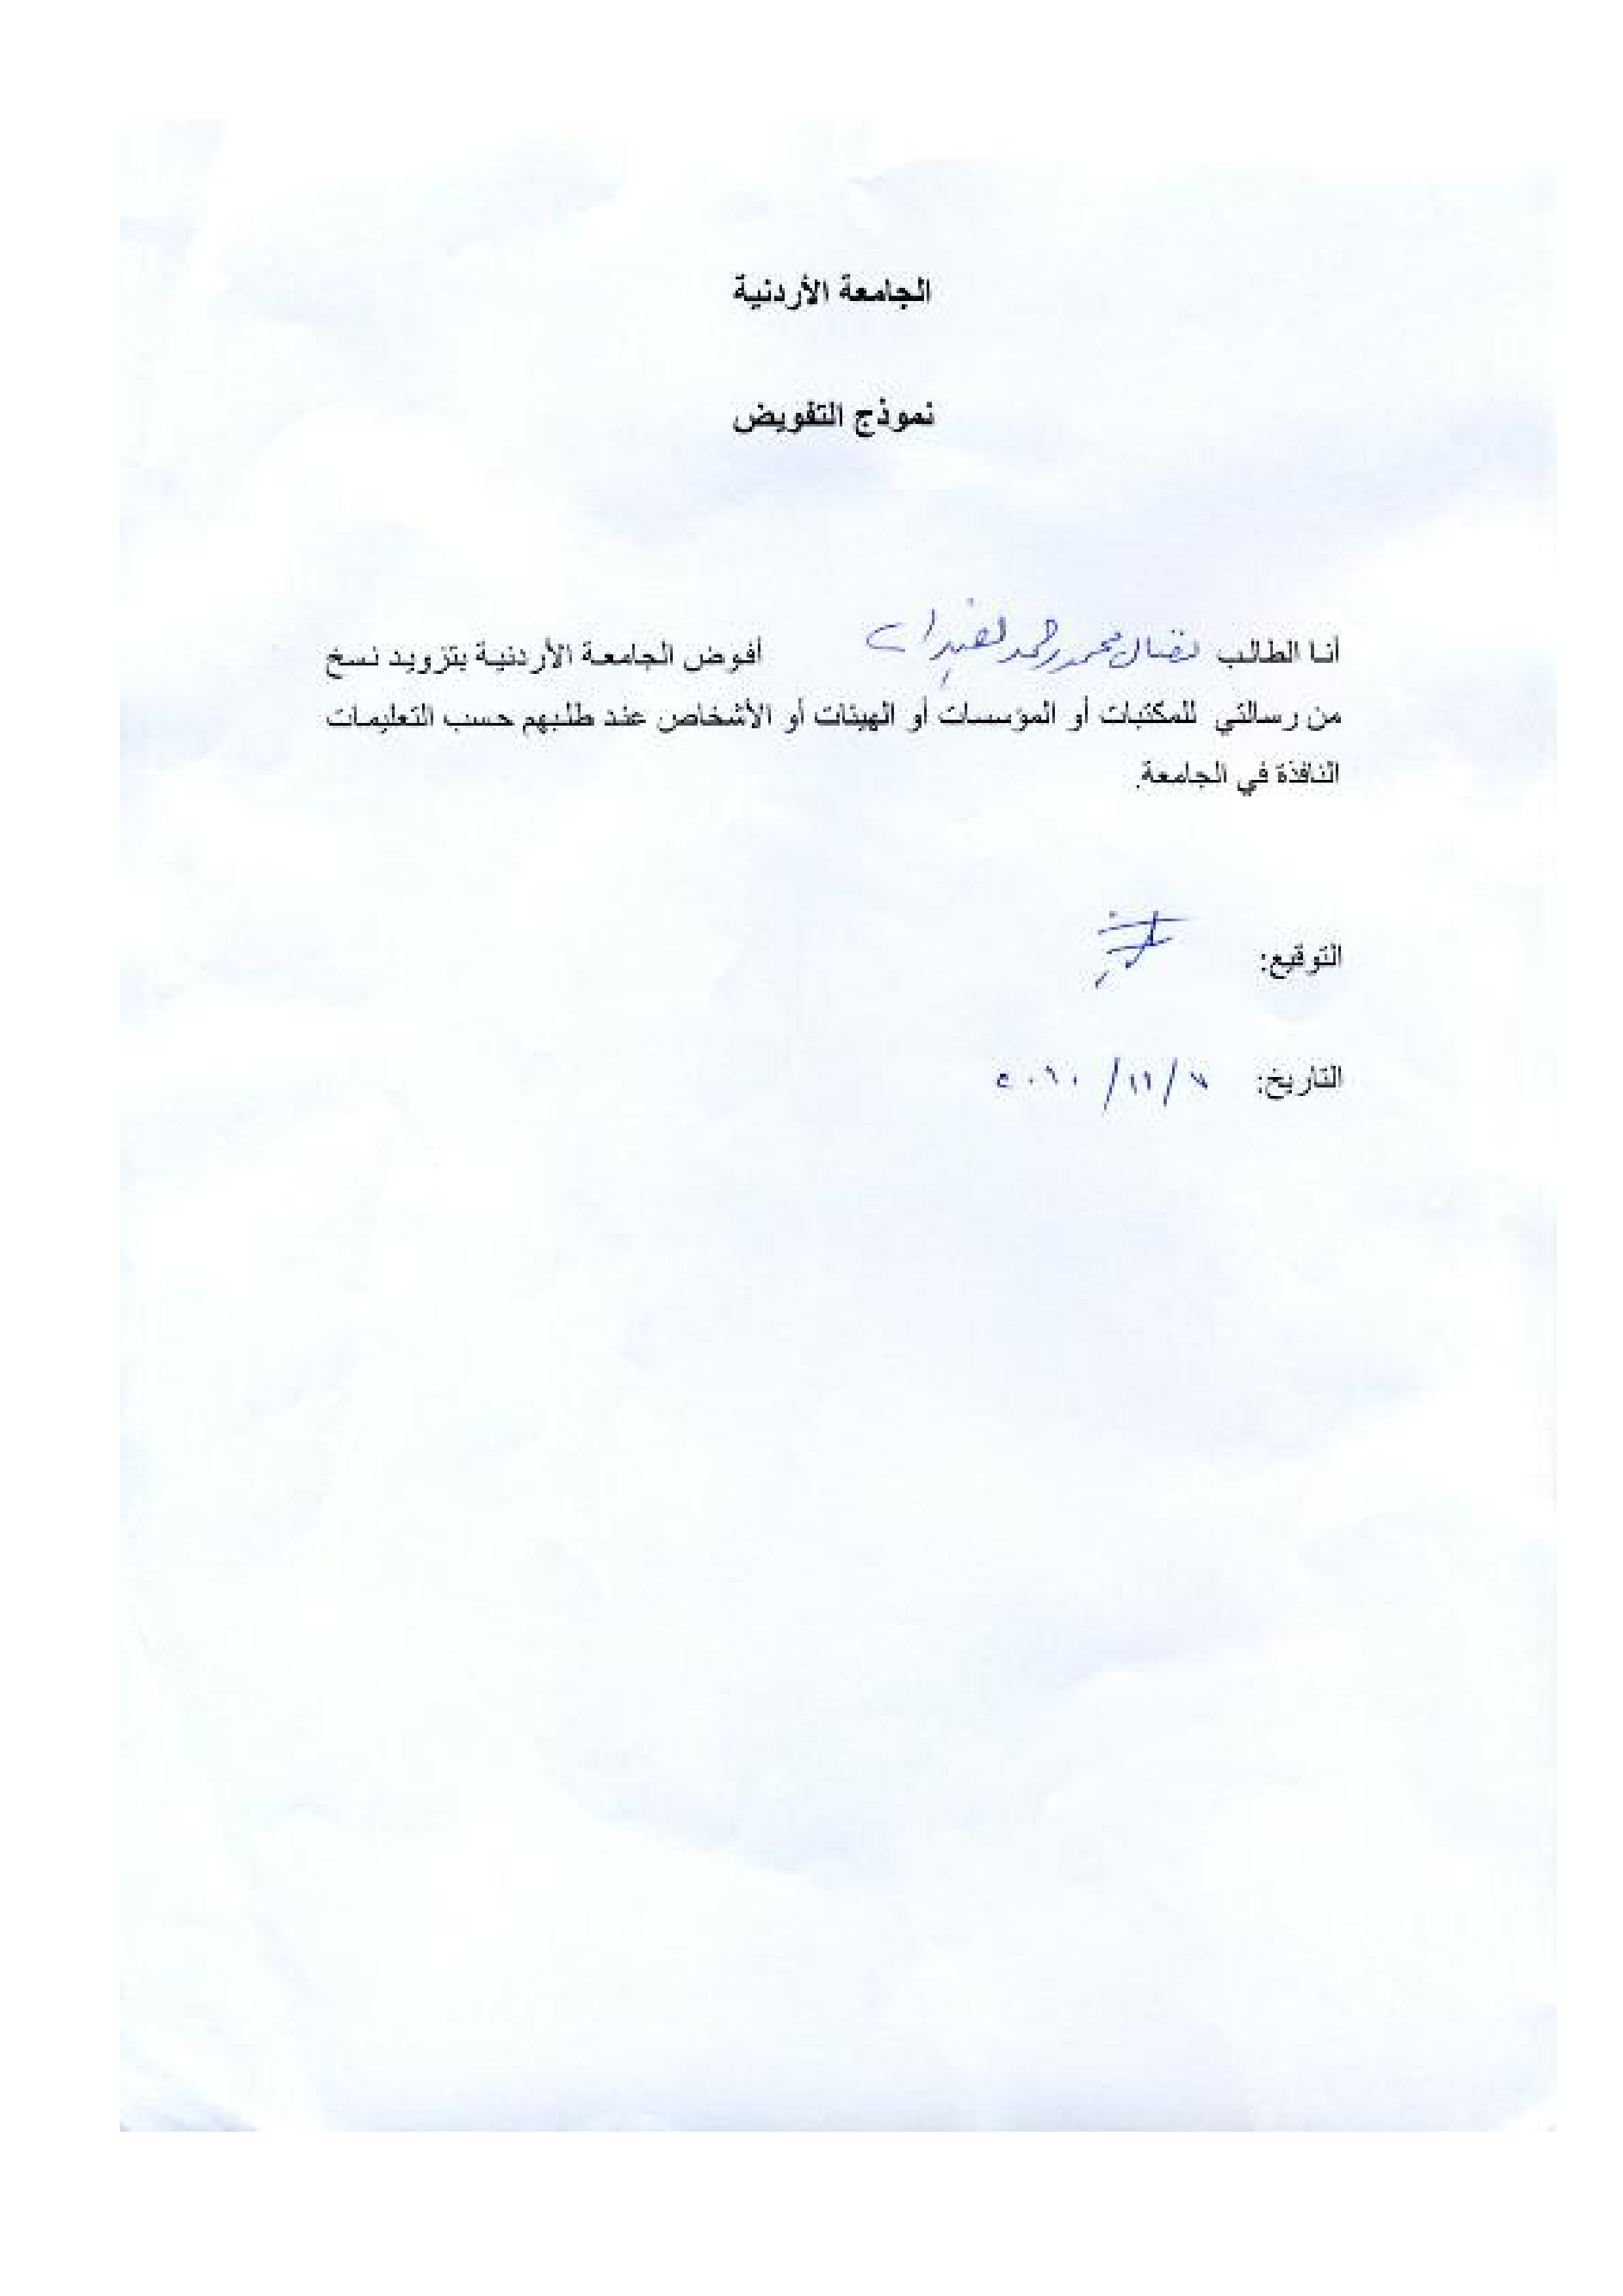 الجامعة الأردنية
نموذج التفويض
أنا الطالب نضال محمد احمد أفوض الجامعة الأردنية بتزويد نسخ
من رسالتي للمكتبات أو المؤسسات أو الهيئات أو الأشخاص عند طلبهم حسب التعليمات
النافذة في الجامعة.
التوقيع:
التاريخ: ٧ / ١٢ / ٢٠١٠